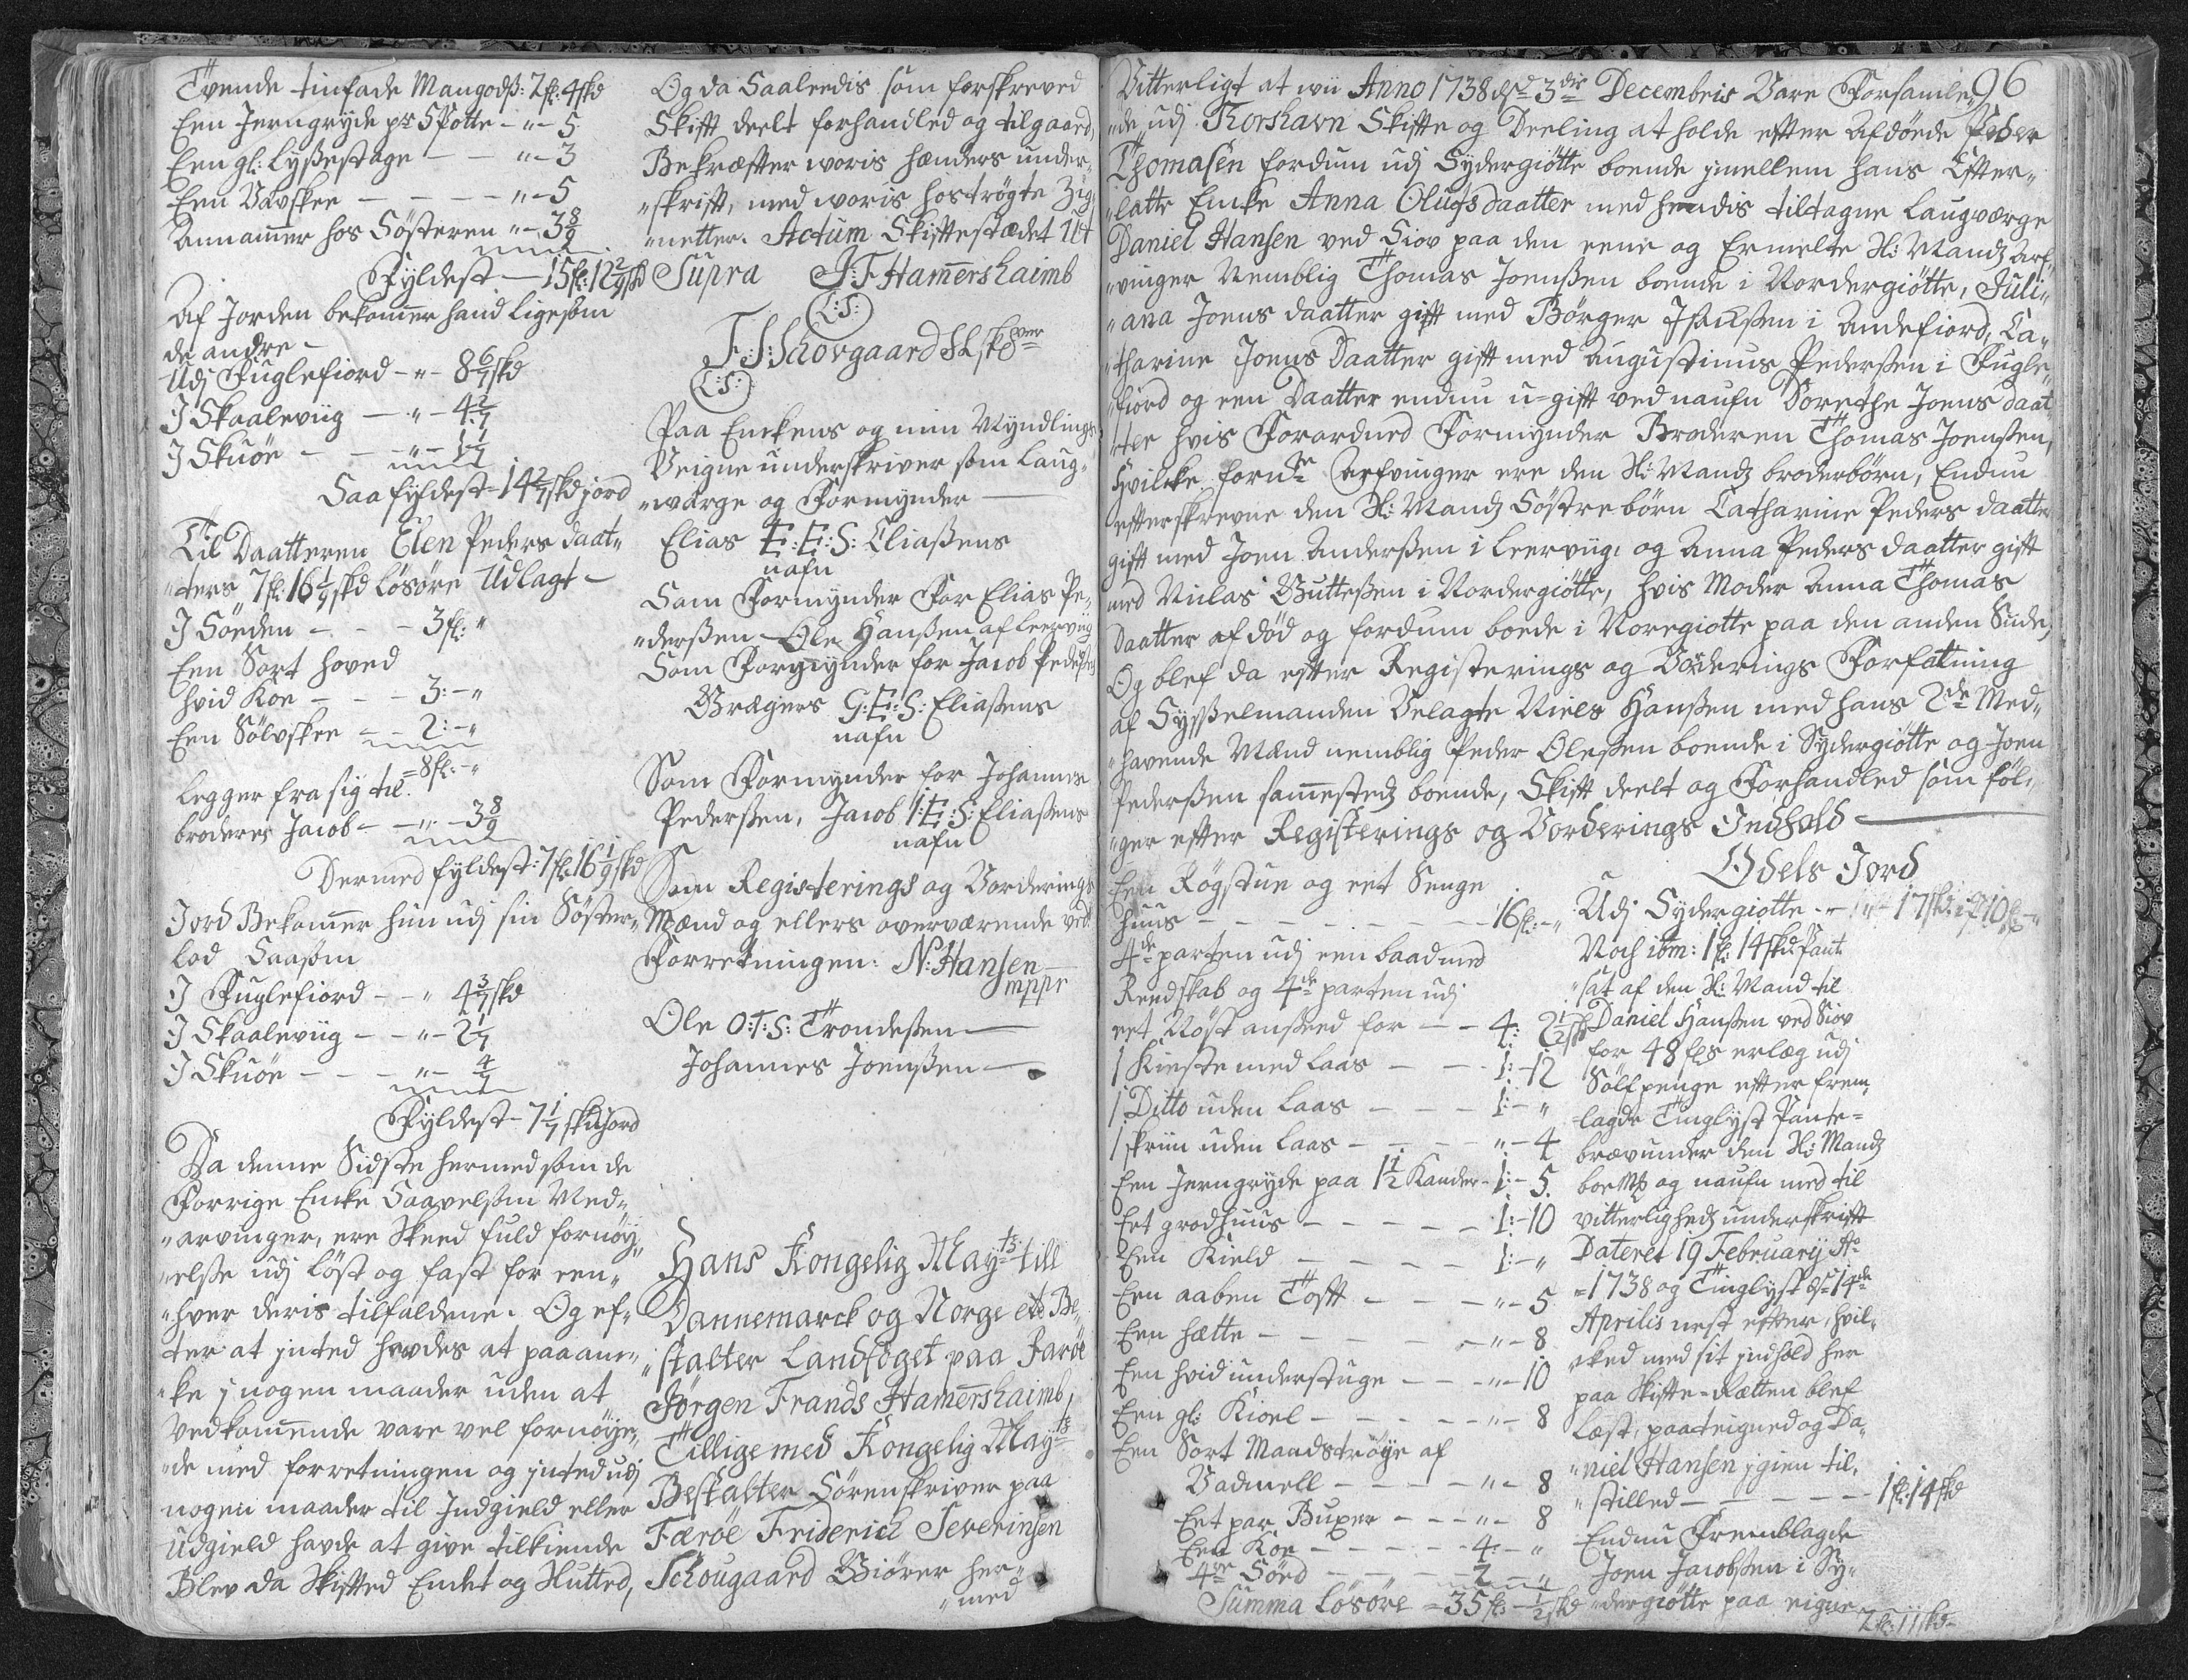 Tvende tinfade Mangodß: 2fl: 4skd
Een Jerngryde pr 5 Potte - " - 5
Een gl: Lyßestage - - " - 3
Een Vævskee - - - - " - 5
Annammer hos Söstern " - 3 8/9
Fyldest - 15fl: 12 2/9skd
Af Jorden bekommer hand ligesom
de andre -
Udj Fuglefiord - " - 8 6/7skd
I Skaaleviig - " - 4 2/7
I Skuöe - - " - 1 1/7
Saa fyldest - 14 2/7skd jord
Til Daatteren Elen Peders daat„
„ters 7fl: 16 1/9skd Lösöre Udlagt -
I Söeden - - - 3fl: "
Een Sort hoved
hvid Koe - - - 3: - "
Een Sölvskee - - 2: - "
= 8fl: - "
legger fra sig til
broderen Jacob - " - 3 8/9
Dermed fyldest: 7fl: 16 1/9skd
Jord Bekommer hun udj sin Söster„
lod Saasom
I Fuglefiord - - " 4 3/7skd
I Skaaleviig - - " - 2 1/7
I Skuöe - - - " - 4/7
Fyldest - 7 1/7 skd Jord
Da denne Sidste hermed som de
Forrige Encke Saavelsom Med„
„arvinger, ere Skeed fuld fornöy„
„else udj löst og fast for een„
„hver deris tilfaldene. Og ef„
ter at inted havdes at paaan„
„ke j nogen maader uden at
Vedkommende vare vel fornöye„
„de med forretningen og intedudj
nogen maader til Indgield eller
Udgield havde at give tilkiende
Blev da Skifted Endet og Slutted,
Og da Saaleedis som forskreved
Skifft deelt forhandled og tilgaard,
Bekræfter woris hænders under„
„skrifft, med woris hoströgte Zig„
„netter. Actum Skiftestædet Ut
Supra J: F Hamershaimb
(L:S:)
F: S: Schovgaard
(L:S:)
Paa Enckens og min Myndlings
Veigne underskriver som Laug„
„værge og Formynder
Elias E: E: S: Eliaßens
nafn
Som Formynder For Elias Pe„
„derßen - Ole Hanßen af Leerviig
Som Formynder for Jacob Pederßen
Brægners G: E: S: Eliaßens
nafn
Som Formynder for Johannes
Pederßen, Jacob I: E: S: Eliaßens
nafn
Som Registerings og Vorderings
Mænd og ellers overværende ved
Forretningen: N: Hansen
mppr
Ole O: T: S: Trondeßen
Johannes Joenßen
Hans Kongelig Mayts till
Dannemarck og Norge etc Be„
„stalter Landfoget paa Faröe
Jörgen Frands Hamershaimb,
Tillige med Kongelig Mayts
Bestalter Sörenskriver paa
Færöe Friderich Severinsen
Schougaard Giörer her„
„med
96
Vitterligt at wii Anno 1738 dsd 3die Decembris Vare Forsamle„
„de udj Thorshavn Skiftte og Deeling at holde efter Afdöede Peder
Thomasen fordum udj Sydergiötte boende jmellem hans Efter„
„latte Encke Anna Olufs daatter med hendis tiltagne Laugværge
Daniel Hansen ved Siov paa den eene og Ermelte Sl: Mandz Arf„
„vinger Nemblig Thomas Joenßen boende i Nordergiötte, Juli„
„ana Joens daatter gift med Börger Isachßen i Andefiord, Ca„
„tharine Joens Daatter gift med Augustinus Pederßen i Fugle„
„fiord og een Daatter endnu u-gift ved naufn Dorethe Joens daat„
„ter hvis Forordned Formynder Broderen Thomas Joenßen,
Hvilcke fornte Arfvinger ere den Sl: Mandz broderbörn, Endnu
efterskrevne den Sl: Mandz Söstrebörn Catharine Peders daatter
gift med Joen Anderßen i Leerviig: og Anna Peders daatter gift
med Niclas Gutteßen i Nordergiötte, hvis Moder Anna Thomas
Daatter af död og fordum boede i Noregiotte paa den anden Side,
Og blef da efter Registerings og Vorderings Forfatning
af Sysselmanden Velagte Niels Hanßen med hans 2de Med„
„havende Mænd nemblig Peder Oleßen boende i Sydergiötte og Joen
Pederßen sammestedz boende, Skifft deelt og Forhandled som föl„
„ger efter Registerings og Vorderings Indhold
Een Rögstue og eet Senge
huus - - - - - - 16fl: - "
4de parten udj een baad med
Reedskab og 4de parten udj
eet Nöst ansteed for - - 4: 2 1/2skd
1 Kieste med Laas - - 1: - 12
1 Ditto uden Laas - - - 1: - "
1 skriin uden Laas - - - " - 4
Een Jerngryde paa 1 1/2 Kander - 1: - 5
Eet grodhuus - - - - - 1: - 10
Een Kield - - - - - 1: - "
Een aaben Toft - - - " - 5
Een hætte - - - - - " - 8
Een hvid understuge - - - " - 10
Een gl: Kioel - - - - " - 8
Een Sort Mandströye af
Vadmell - - - - " - 8
Eet par Buxer - - - " - 8
Een Koe - - - - 4: - "
4re Söed - - - - 2 - "
Summa Lösöre = 35fl: - 1/2skd
Odels Jord
Udj Sydergiötte - " 17skd: 10
Noch ibm: 1fl: 14skd Pant
„sat af den Sl: Mand til
Daniel Hanßen ved Siov
for 48 fls erlæg udj
Sölfpenge efter frem„
lagde Tinglyst Pante=
brev under den Sl: Mandz
boeMß og naufn med til
vitterlighedz underskrifft
Dateret 19 February Ao
=1738 og Tinglyst ds 14de
Aprilis nest efter, hvil„
„cked med sit indhold her
paa Skifte-Rætten blef
Læst, paateigned og Da„
„niel Hansen jgien til„
„stilled - - - - - 1fl: 14skd
Endnu Fremblagde
Joen Jacobßen i Sy„
„dergiötte paa eigne
2fl: 11skd